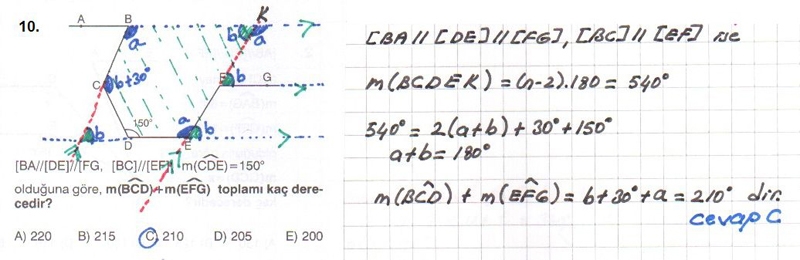 10.
A B K
b a
C b+30° F b G
150° a b
b D E
[BA//[DE]//[FG, [BC]//[EF] m(CDE)=150°
olduğuna göre, m(BCD)+m(EFG) toplamı kaç dere-
cedir?
A) 220 B) 215 C) 210 D) 205 E) 200
[BA // [DE] // [FG], [BC] // [EF] ise
m(BCDEK) = (n-2).180 = 540°
540° = 2(a+b) + 30° + 150°
a+b = 180°
m(BCD) + m(EFG) = b+30°+a = 210° dir.
cevap C